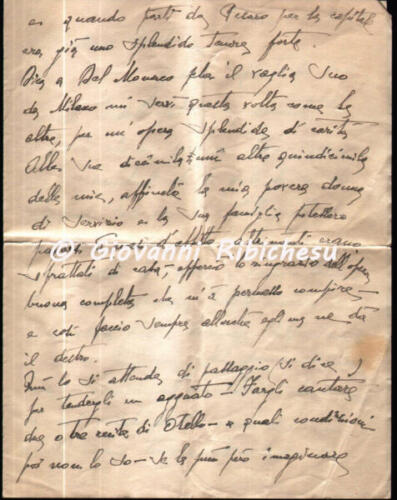 es quando partì da Pesaro per la capital
era già uno splendido tenore forte.
Dica a Del Monaco che il vaglia suo
da Milano mi servì questa volta come le
altre, per un'opera splendida di carità
Alle sue diecimila altre quindicimila
delle mie, affinché la mia povera donna
di servizio e la sua famiglia potessero
erano
sfrattati di casa,
© Giovanni Ribichesu
buona completa che m'à permesso compiere
e così faccio sempre allorché egli me ne dà
il destro.
lo si attende di passaggio (si dice)
per tendergli un agguato - Fargli cantare
due o tre recite di Otello - a quali condizioni
poi non lo so - Se la può però immaginare